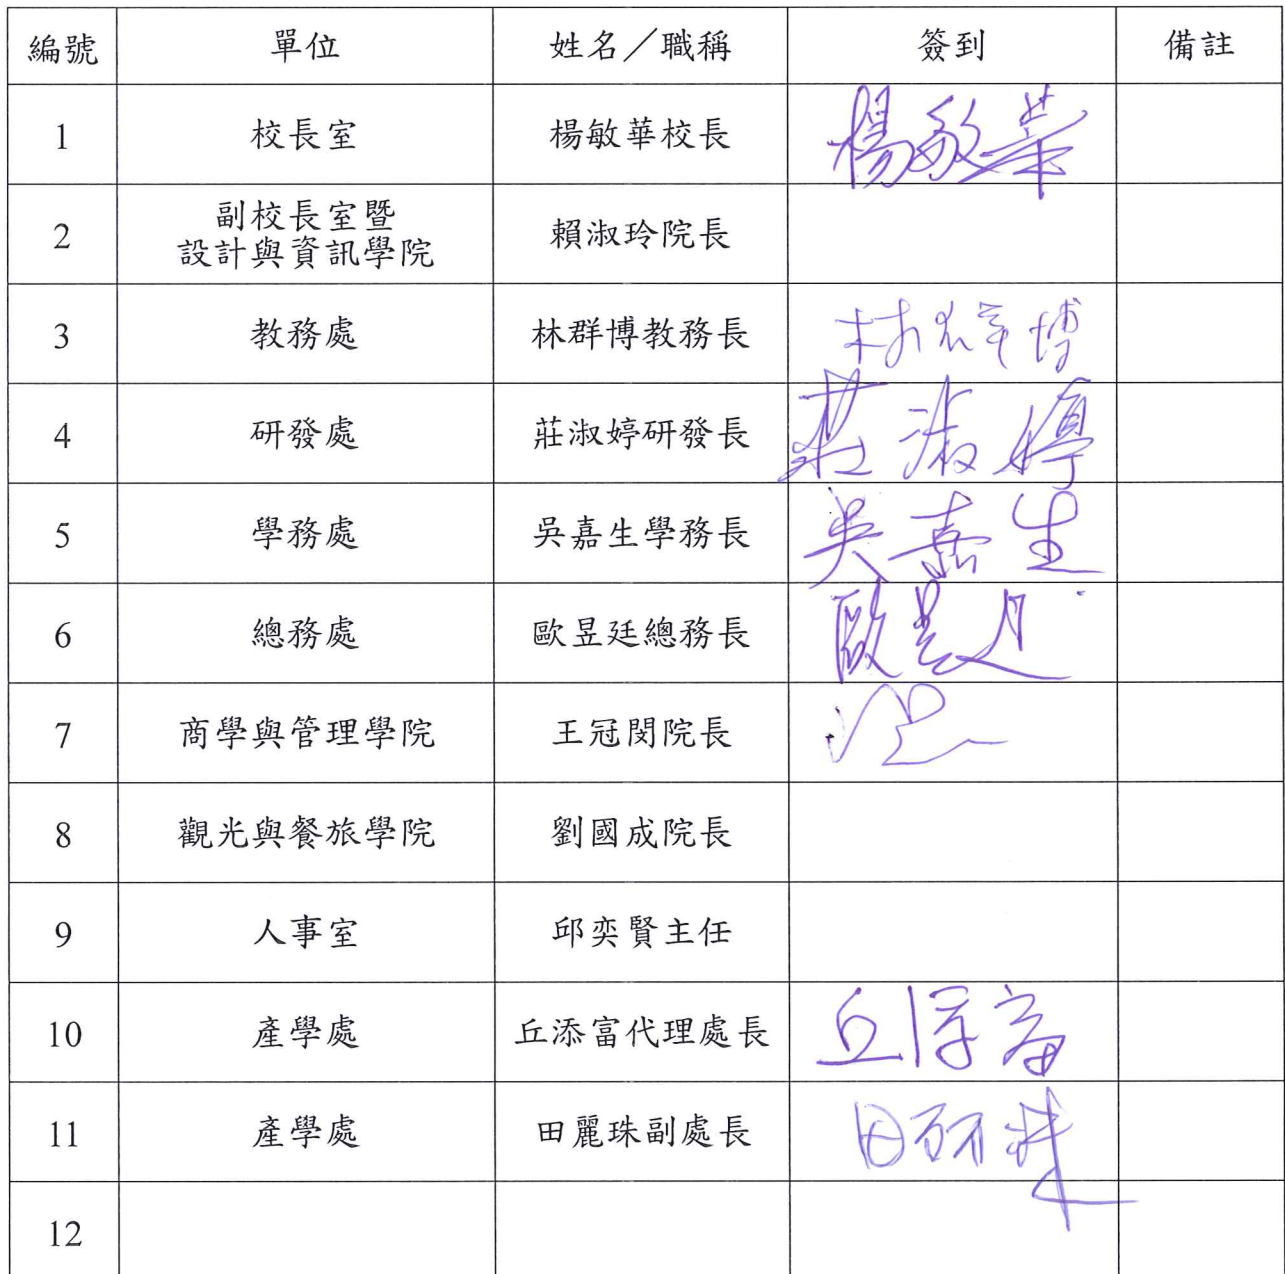 編號 單位 姓名／職稱 簽到 備註
1 校長室 楊敏華校長 楊敏華
2 副校長室暨
設計與資訊學院 賴淑玲院長
3 教務處 林群博教務長 林群博
4 研發處 莊淑婷研發長 莊淑婷
5 學務處 吳嘉生學務長 吳嘉生
6 總務處 歐昱廷總務長
7 商學與管理學院 王冠閔院長
8 觀光與餐旅學院 劉國成院長
9 人事室 邱奕賢主任
10 產學處 丘添富代理處長
11 產學處 田麗珠副處長 田麗珠
12